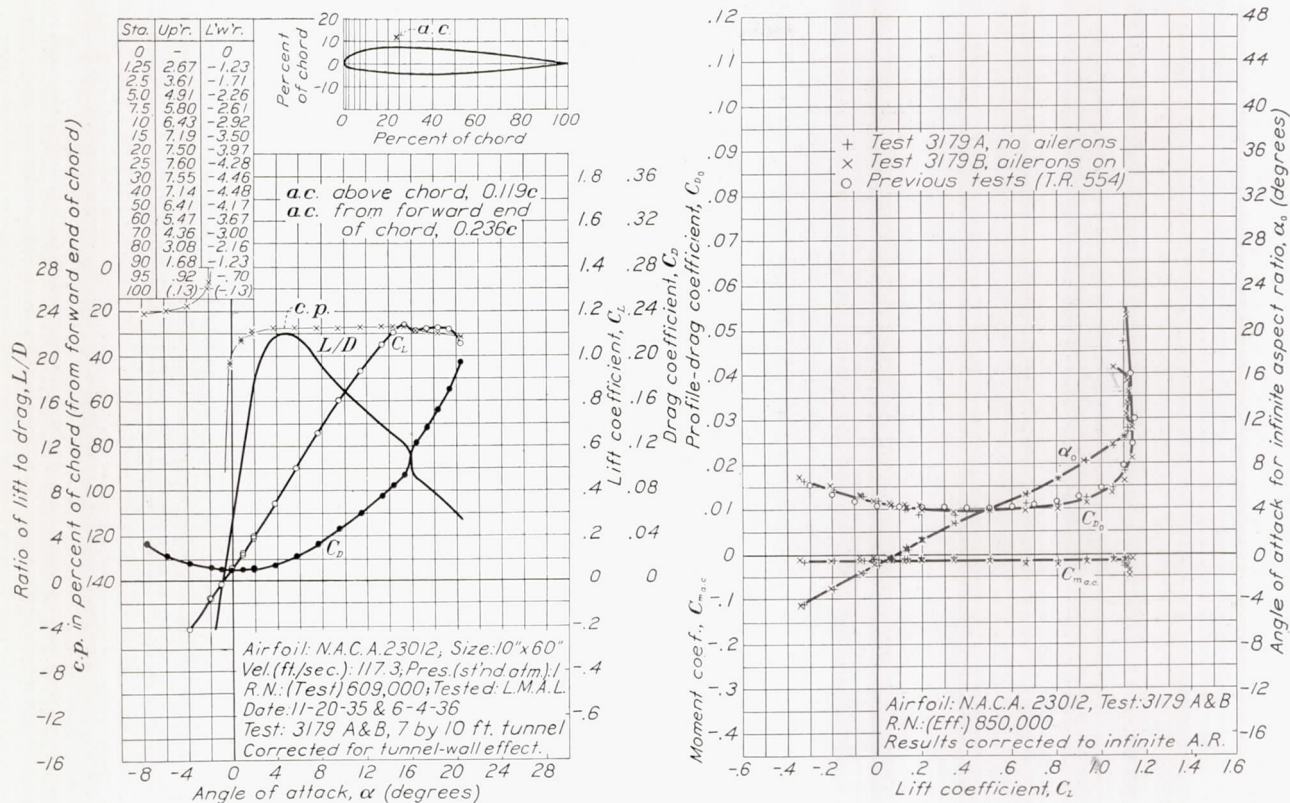 Sta. Up'r. L'w'r.
0 – 0
1.25 2.67 –1.23
2.5 3.61 –1.71
5.0 4.91 –2.26
7.5 5.80 –2.61
10 6.43 –2.92
15 7.19 –3.50
20 7.50 –3.97
25 7.60 –4.28
30 7.55 –4.46
40 7.14 –4.48
50 6.41 –4.17
60 5.47 –3.67
70 4.36 –3.00
80 3.08 –2.16
90 1.68 –1.23
95 .92 –.70
100 (.13) (–.13)
20
10
0
–10
Percent of chord
a.c.
0 20 40 60 80 100
Percent of chord
a.c. above chord, 0.119c
a.c. from forward end
of chord, 0.236c
Ratio of lift to drag, L/D
28
24
20
16
12
8
4
0
–4
–8
–12
–16
c.p. in percent of chord (from forward end of chord)
0
20
40
60
80
100
120
140
c.p.
L/D
C_L
C_D
1.8 .36
1.6 .32
1.4 .28
1.2 .24
1.0 .20
.8 .16
.6 .12
.4 .08
.2 .04
0 0
–.2
–.4
–.6
Lift coefficient, C_L
Drag coefficient, C_D
Airfoil: N.A.C.A. 23012; Size: 10"x60"
Vel. (ft./sec.): 117.3; Pres. (st'nd. atm.): 1
R.N.: (Test) 609,000; Tested: L.M.A.L.
Date: 11-20-35 & 6-4-36
Test: 3179 A&B, 7 by 10 ft. tunnel
Corrected for tunnel-wall effect.
–8 –4 0 4 8 12 16 20 24 28
Angle of attack, α (degrees)
Profile-drag coefficient, C_D₀
.12
.11
.10
.09
.08
.07
.06
.05
.04
.03
.02
.01
0
Moment coef., C_m a.c.
–.1
–.2
–.3
–.4
+ Test 3179 A, no ailerons
× Test 3179 B, ailerons on
○ Previous tests (T.R. 554)
α₀
C_D₀
C_m a.c.
48
44
40
36
32
28
24
20
16
12
8
4
0
–4
–8
–12
–16
Angle of attack for infinite aspect ratio, α₀ (degrees)
Airfoil: N.A.C.A. 23012, Test: 3179 A&B
R.N.: (Eff.) 850,000
Results corrected to infinite A.R.
–.6 –.4 –.2 0 .2 .4 .6 .8 1.0 1.2 1.4 1.6
Lift coefficient, C_L